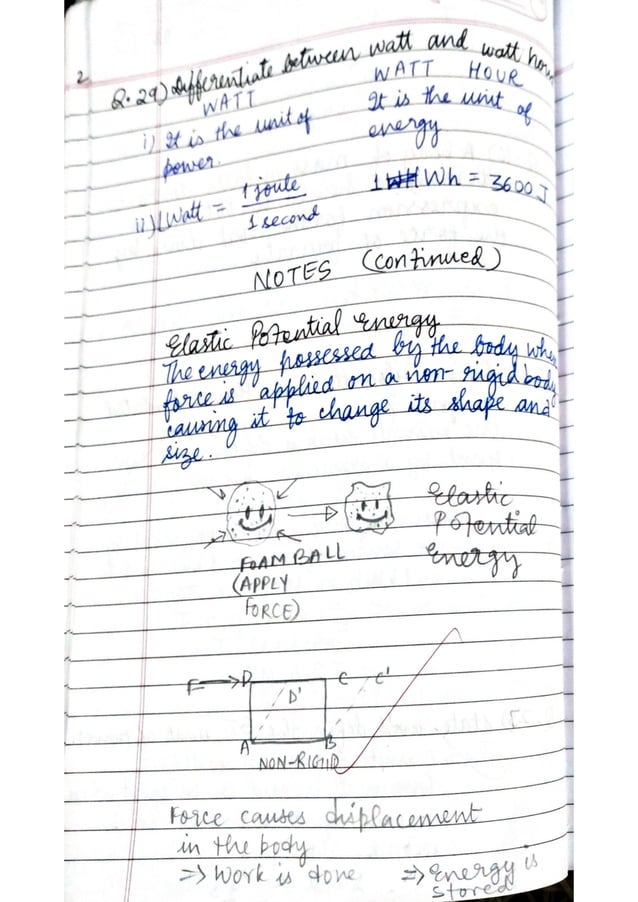 2
Q.29) Differentiate between watt and watt hour
WATT
WATT HOUR
i) It is the unit of power.
It is the unit of energy
ii) 1 Watt = 1 joule / 1 second
1 Wh = 3600 J
NOTES (continued)
Elastic Potential Energy
The energy possessed by the body when
force is applied on a non-rigid body
causing it to change its shape and
size.
FOAM BALL
(APPLY
FORCE)
Elastic
Potential
Energy
F D C C'
D'
A B
NON-RIGID
Force causes displacement
in the body
=> Work is done => Energy is
stored